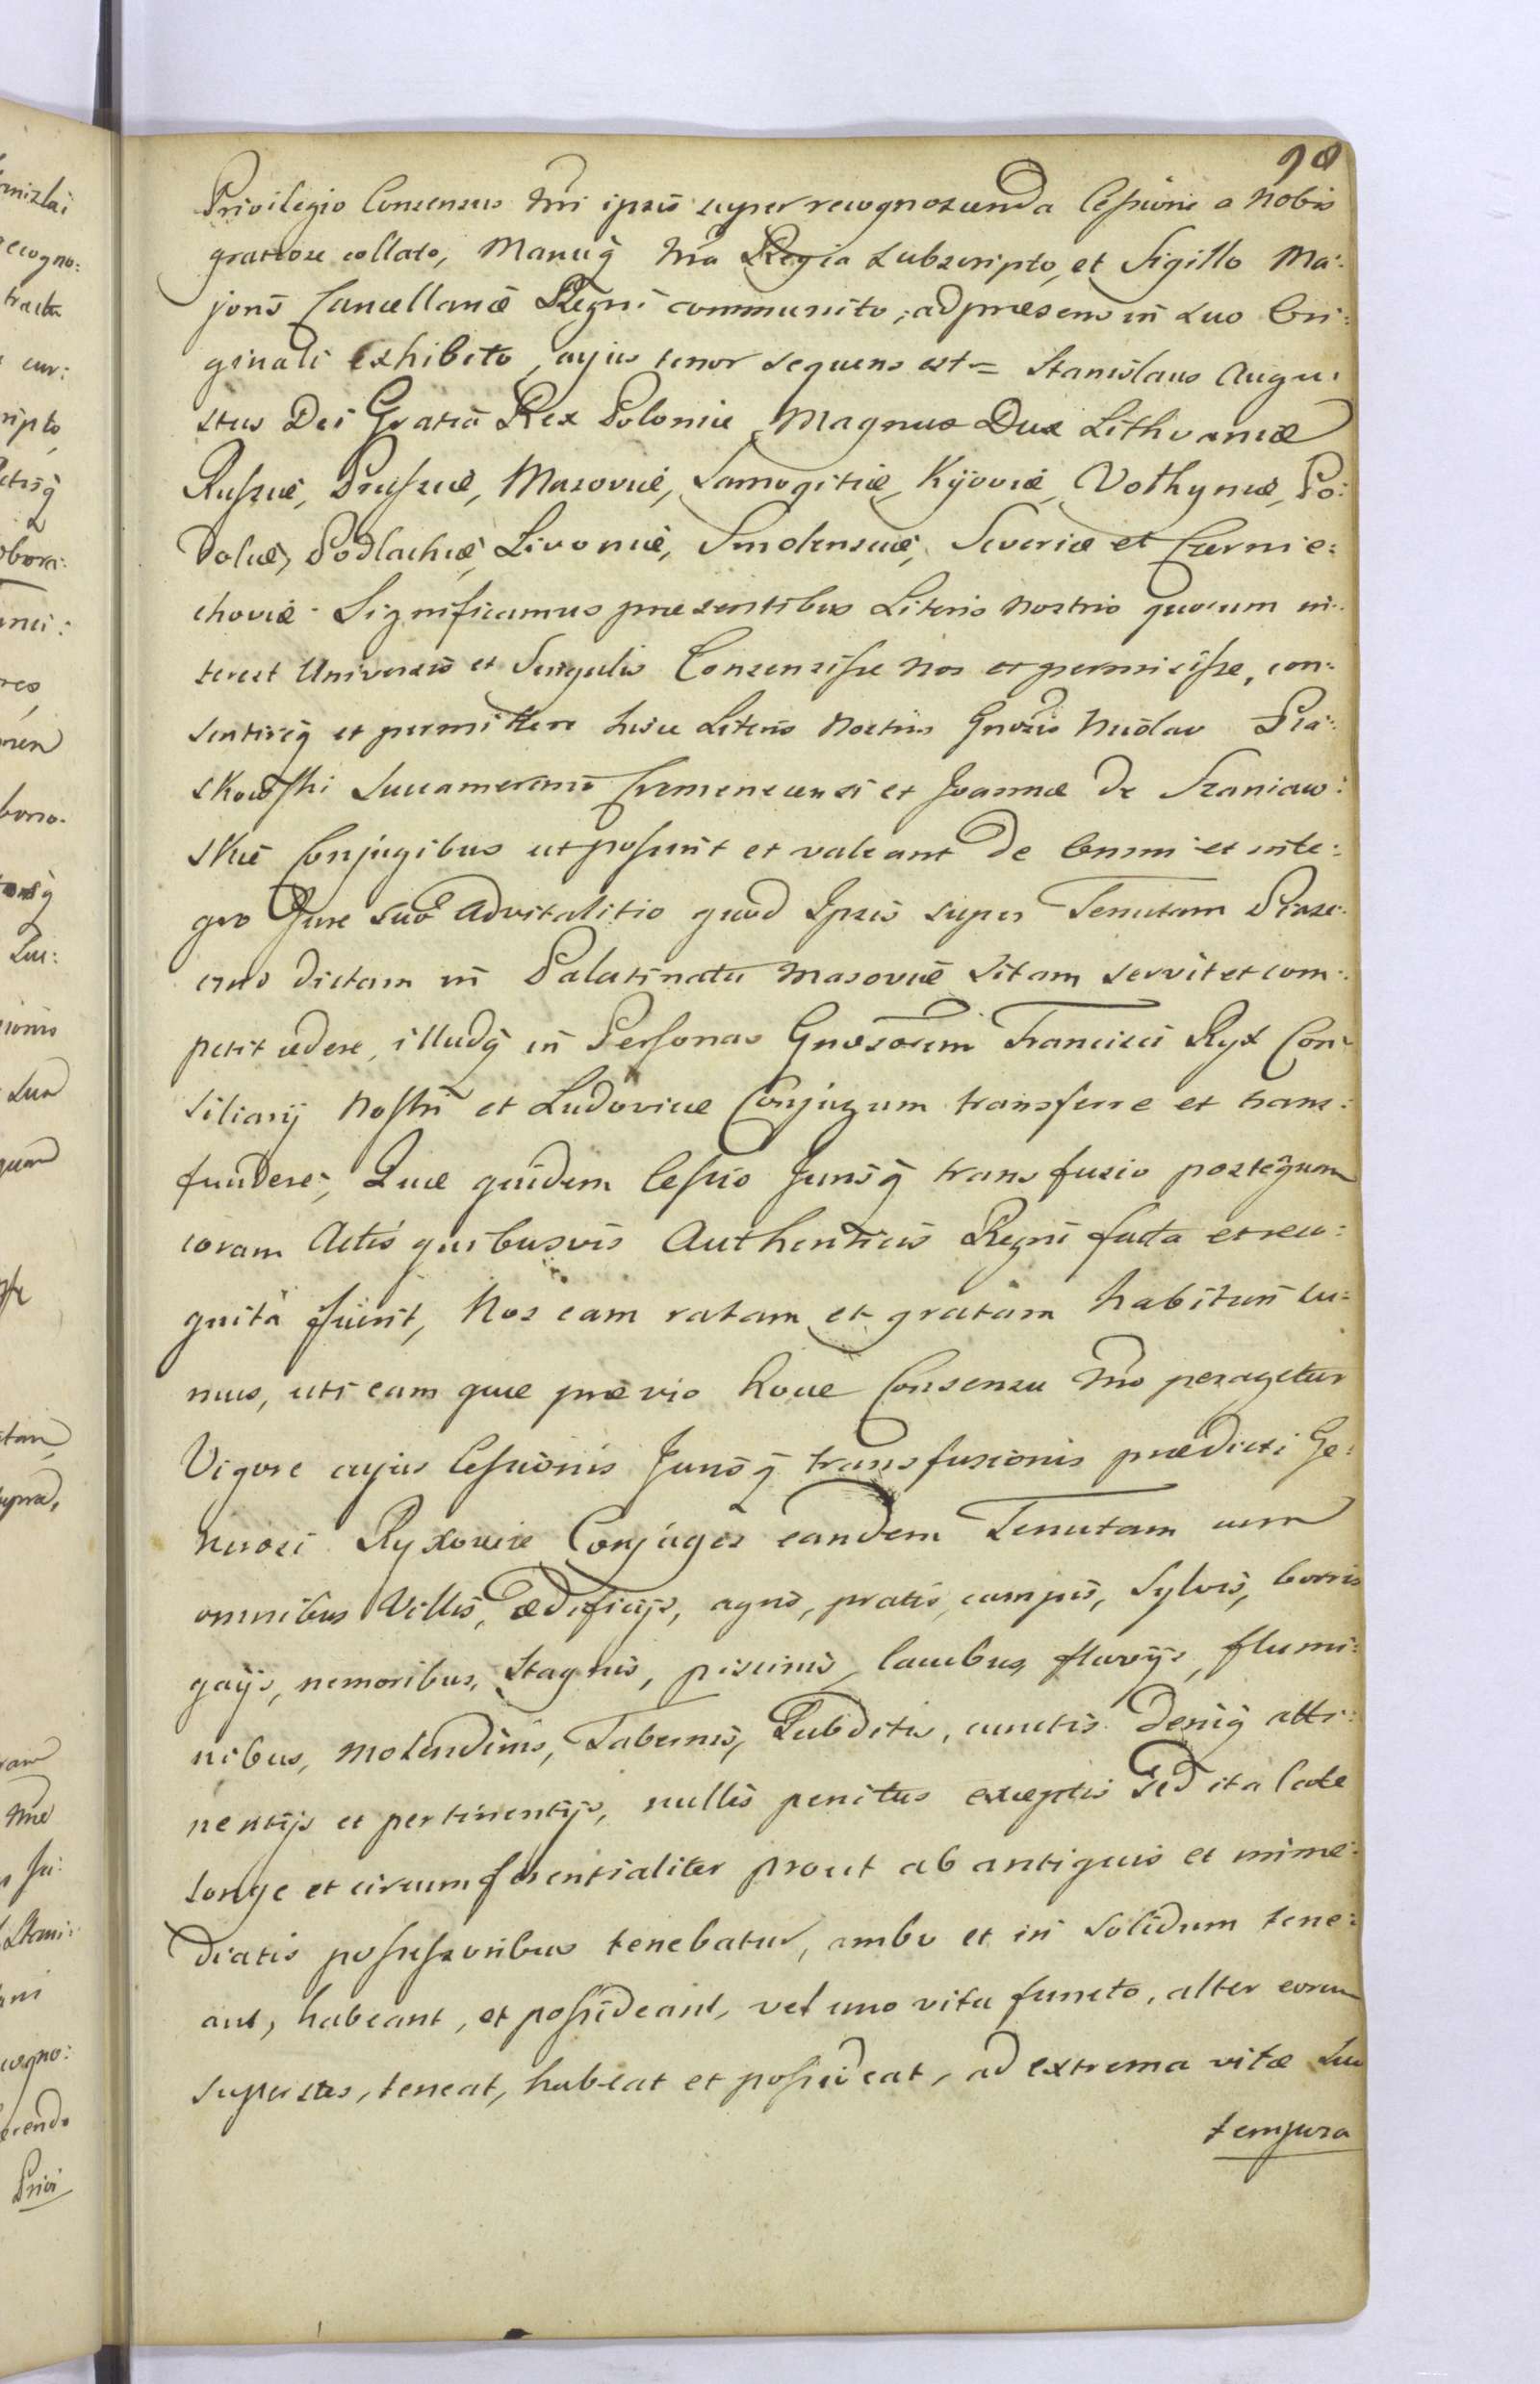 98
Privilegio Consensus Nri ipsis super recognoscenda Cessione a Nobis
gratiose collato, Manuq̃ Nra Regia subscripto, et Sigillo Ma:
joris Cancellariæ Regni communito, ad præsens in suo Ori:
ginali exhibito, cujus tenor sequens est = Stanislaus Augu:
stus Dei Gratia Rex Poloniæ, Magnus Dux Lithvaniæ
Russiæ, Prussiæ, Masoviæ, Samogitiæ, Kijoviæ, Volhyniæ, Po:
doliæ, Podlachiæ, Livoniæ, Smolensciæ, Severiæ et Czernie:
choviæ. Significamus præsentibus Literis Nostris quorum in:
terest Universis et Singulis Consensisse Nos et permisisse, con:
sentireq̃ et permittere hisce Literis Nostris Gnosis Nicolao Pia:
skowski Succamerario Cremenecensi et Joannæ de Szaniaw:
skie Conjugibus ut possint et valeant de Omni et inte:
gro Jure suo Advitalitio quod Ipsis super Tenutam Piase:
czno dictam in Palatinatu Masoviæ sitam servit et com:
petit cedere, illudq̃ in Personas Gnosorum Francisci Ryx Con:
siliarij Nostri et Ludovicæ Conjugum transferre et trans:
fundere; Quæ quidem Cessio Jurisq̃ transfusio posteaquam
coram Actis quibusvis Authenticis Regni facta et reco:
gnita fuerit, Nos eam ratam et gratam habituri su:
mus, uti eam quæ prævio hocce Consensu Nro peragetur
Vigore cujus Cessionis Jurisq̃ transfusionis prædicti Ge:
nerosi Ryxowie Conjuges eandem Tenutam cum
omnibus Villis, ædificijs, agris, pratis, campis, sylvis, borris
gajis, nemoribus, stagnis, piscinis, lacubus, fluvijs, flumi:
nibus, molendinis, Tabernis, Subditis, cunctis deniq̃ atti:
nentijs et pertinentijs, nullis penitus exceptis Sed ita late
longe et circumferentialiter prout ab antiquis et imme:
diatis possessoribus tenebatur, ambo et in solidum tene:
ant, habeant, et possideant, vel uno vita functo, alter eorum
superstes, teneat, habeat et possideat, ad extrema vitæ suæ
tempora